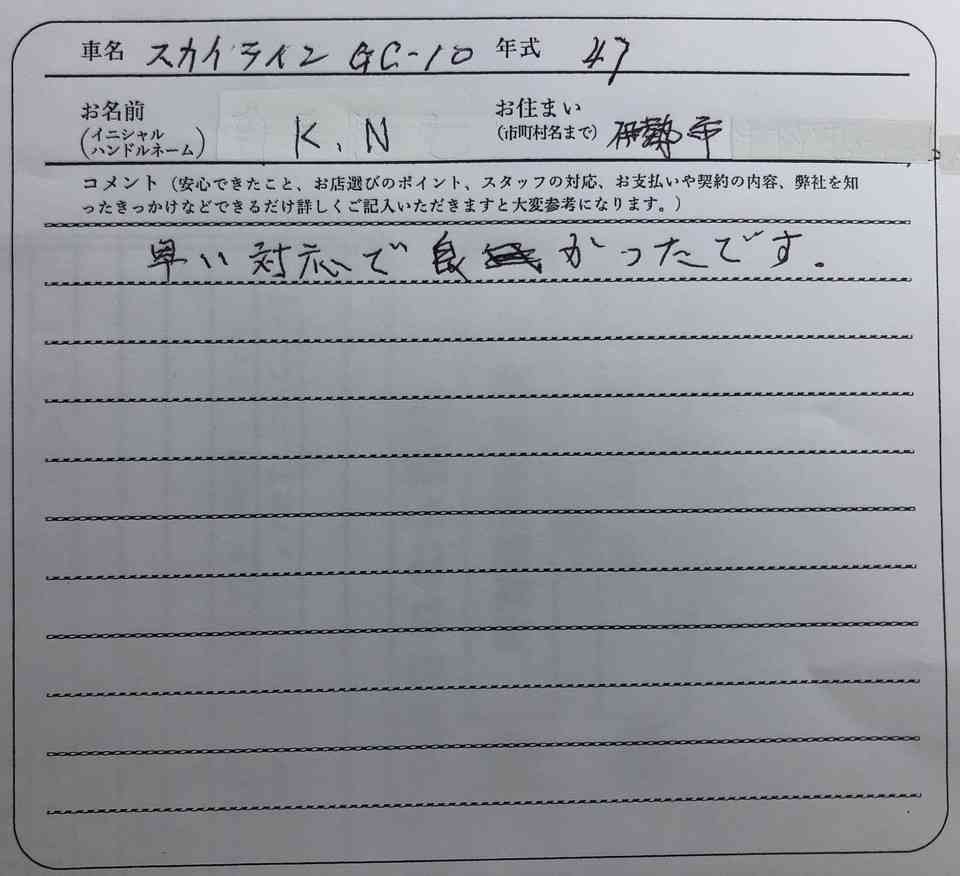 車名 スカイライン GC-10 年式 47
お名前 お住まい
(イニシャル ハンドルネーム) K.N (市町村名まで) 伊勢市
コメント（安心できたこと、お店選びのポイント、スタッフの対応、お支払いや契約の内容、弊社を知
ったきっかけなどできるだけ詳しくご記入いただきますと大変参考になります。）
早い対応で良かったです。